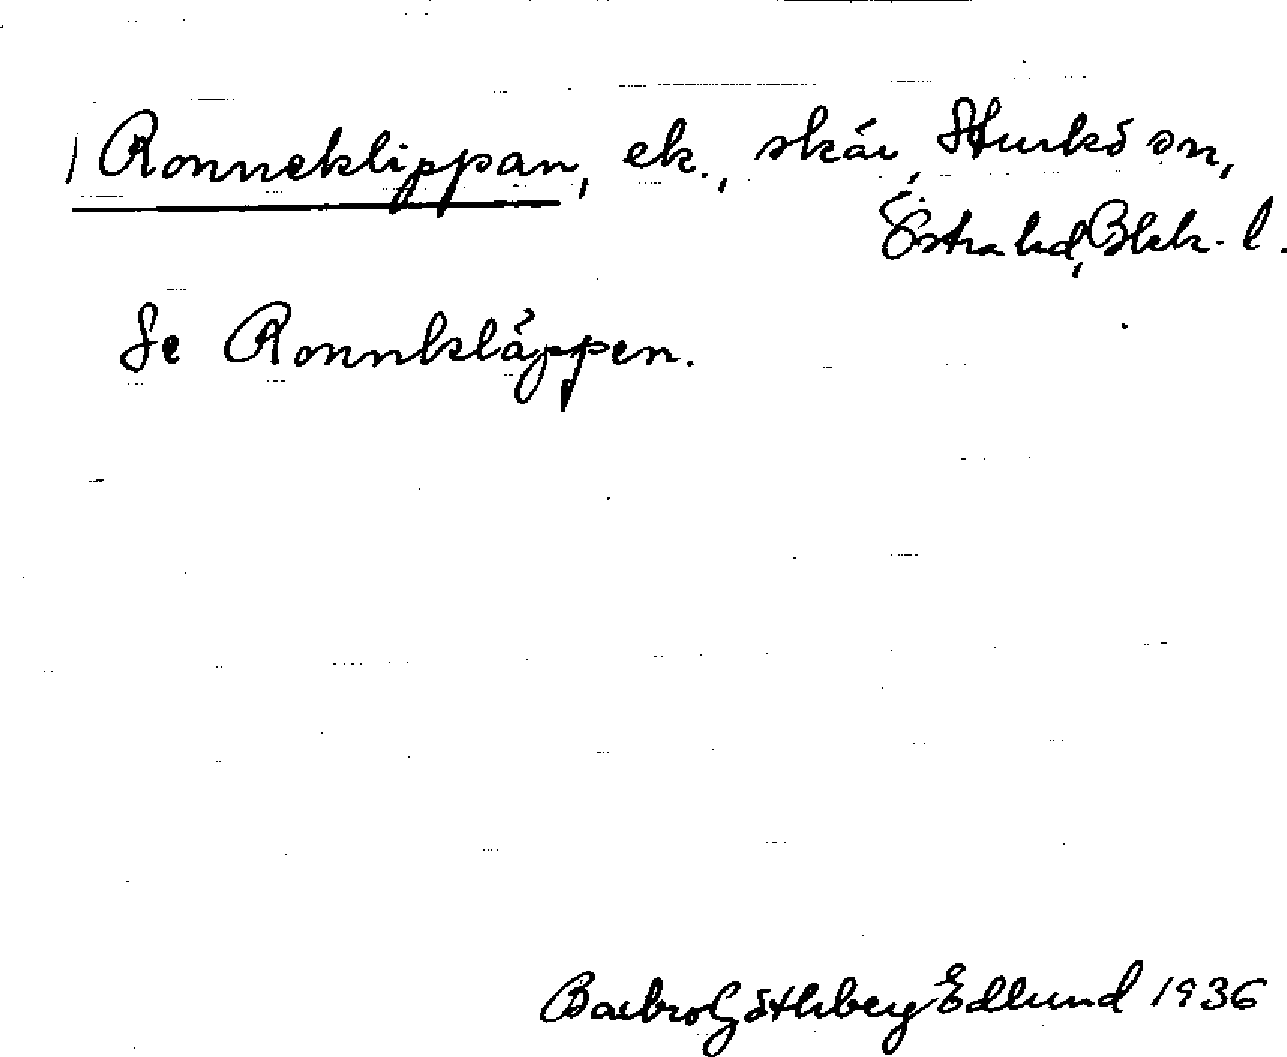 1) Ronneklippan, ek., skär, Sturkö sn,
Östra hd, Blek. l.
Se Ronnkläppen.
Barbro Göthberg Edlund 1936